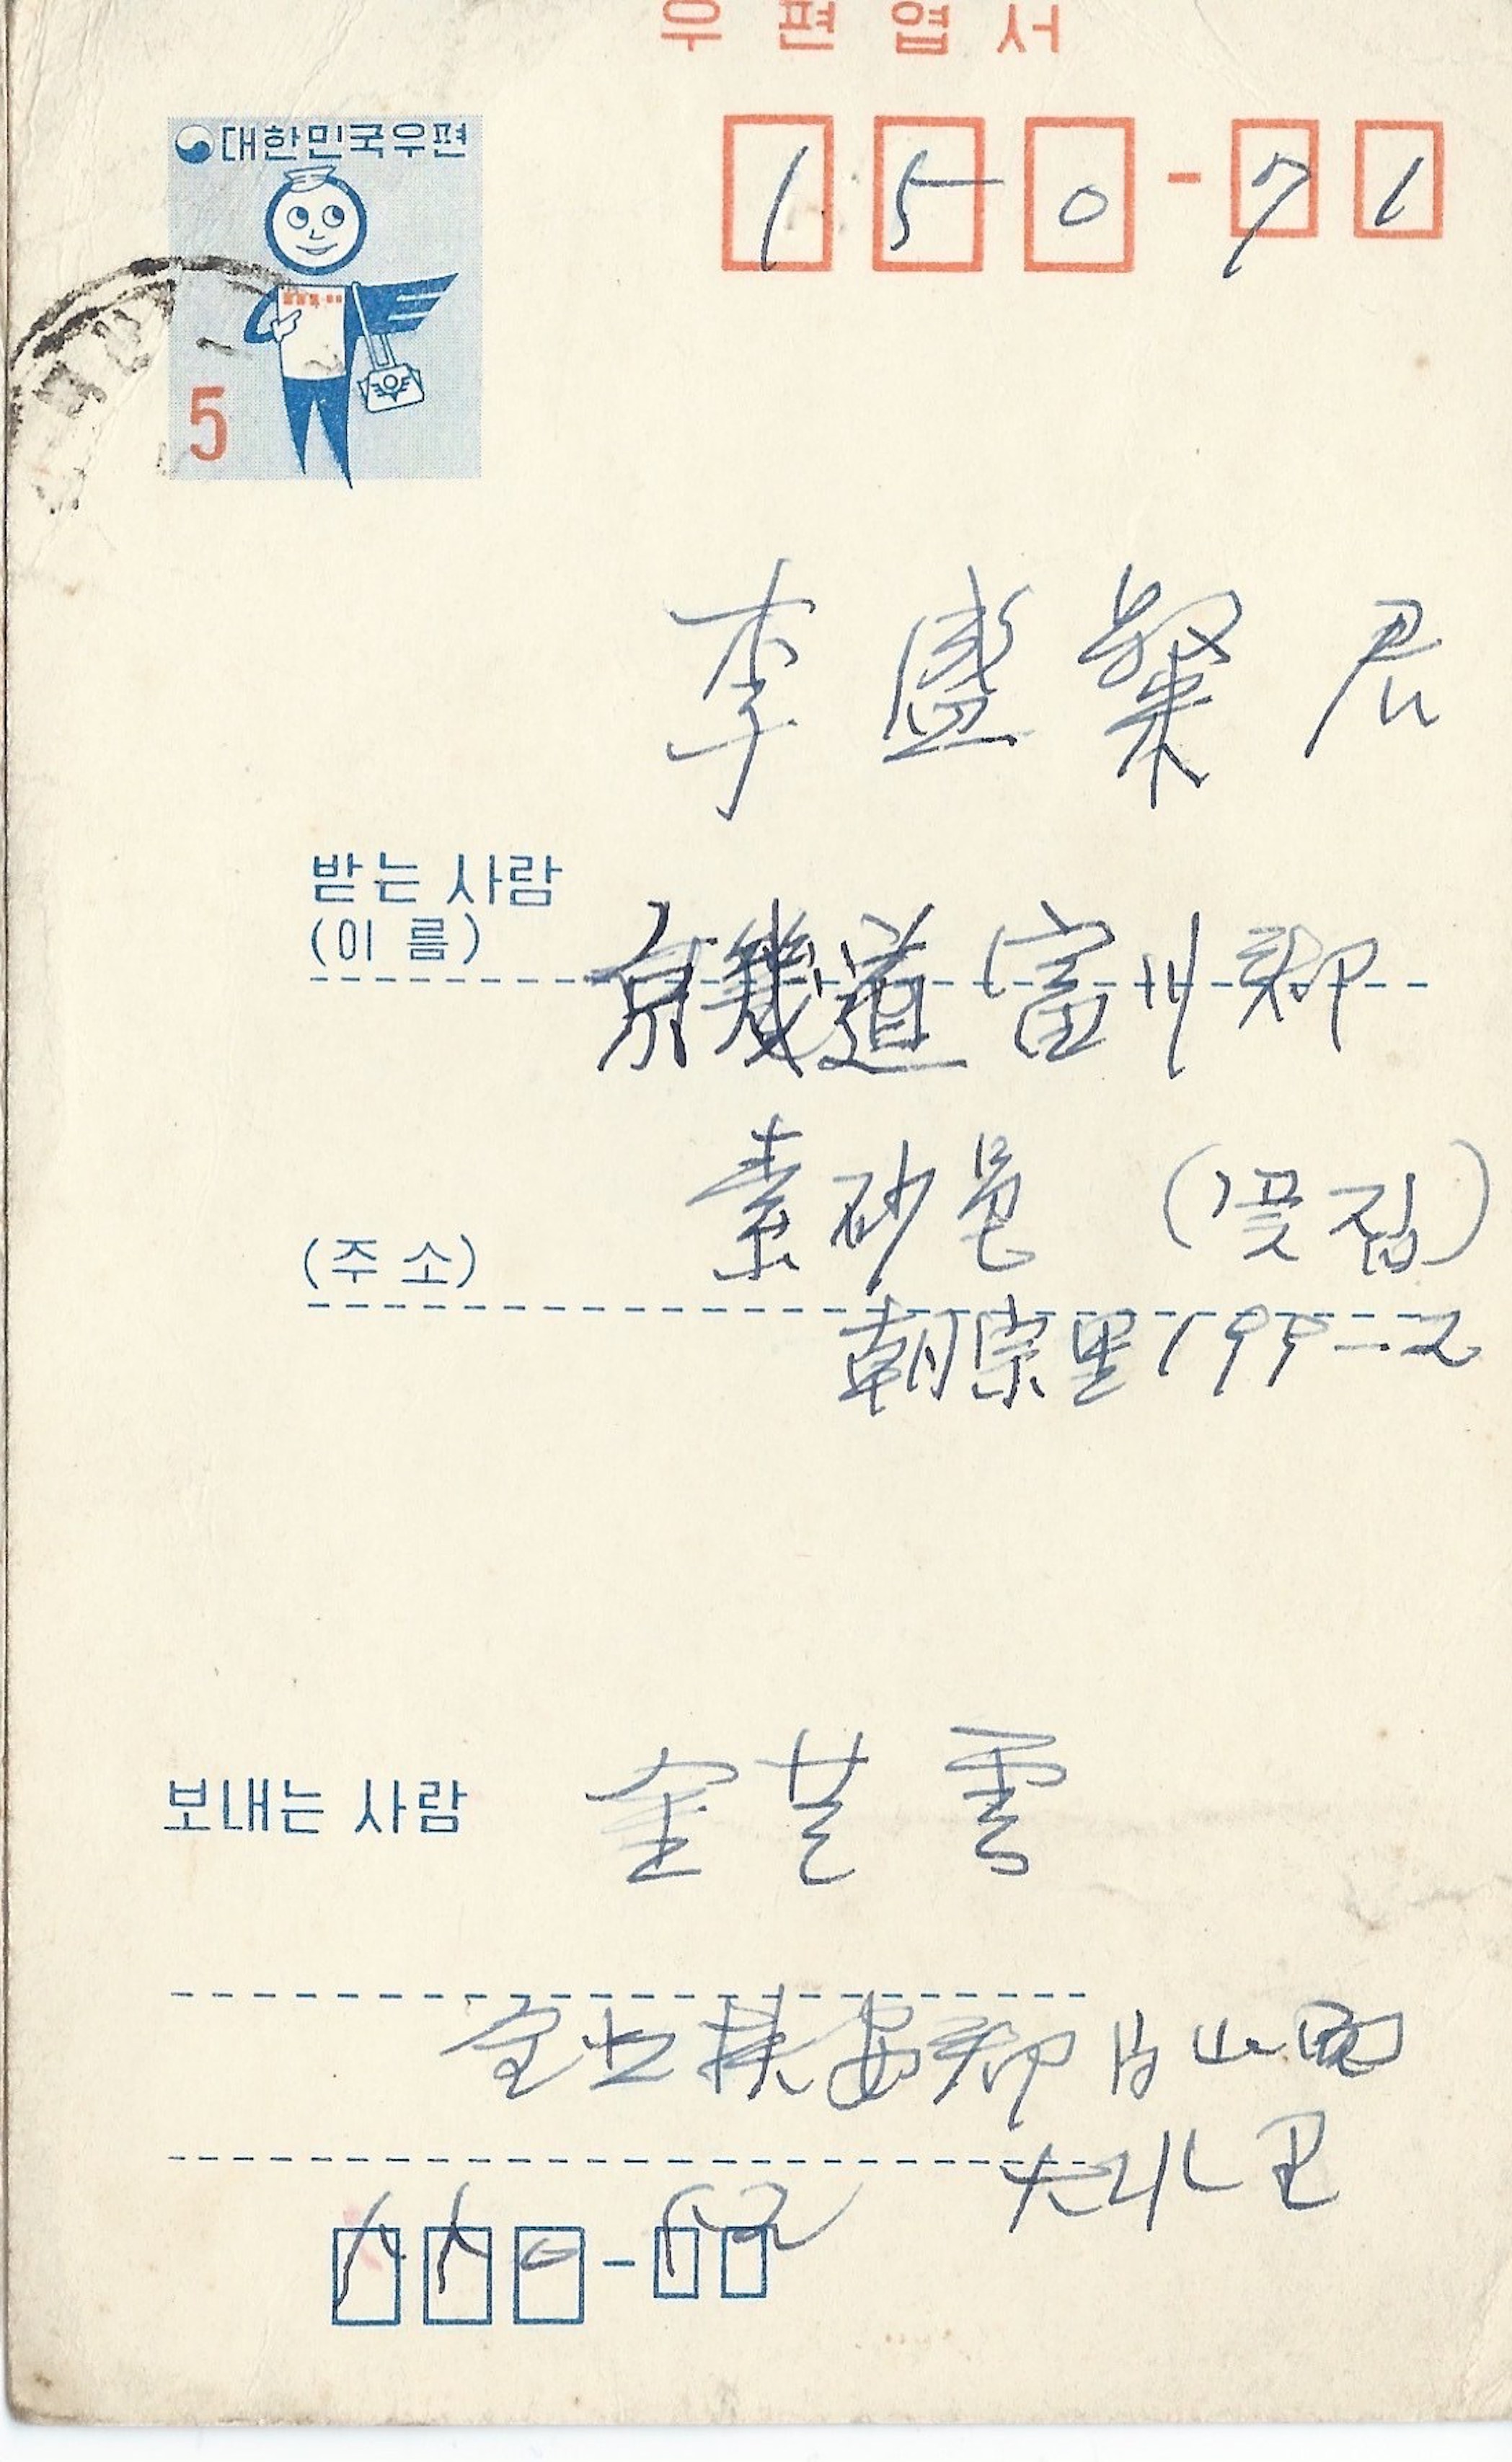 우편엽서
대한민국우편
150-71
5
李盛粲 君
받는 사람
(이 름)
京畿道 富川郡
素砂邑 (꽃집)
(주 소)
朝宗里199-2
보내는 사람 金芝雲
全北扶安郡 白山面
大水里